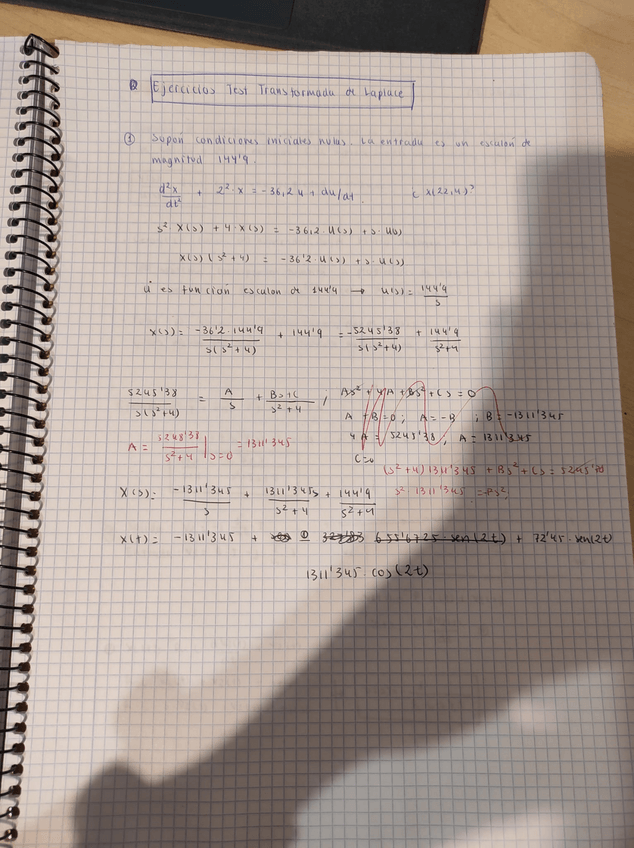 Ejercicios Test Transformada de Laplace
③ Supon condiciones iniciales nulas. La entrada es un escalón de
magnitud 144'9.
d²x/dt² + 2²·x = -36,2 u + du/dt. ¿ X(22,4)?
s²·X(s) + 4·X(s) = -36,2·U(s) + s·U(s)
X(s)(s²+4) = -36'2·U(s) + s·U(s)
u es función escalon de 144'9 → U(s) = 144'9/s
X(s) = -36'2·144'9/s(s²+4) + 144'9 = -5245'38/s(s²+4) + 144'9/s²+4
5245'38/s(s²+4) = A/s + Bs+C/s²+4 , As² + 4A + Bs² + Cs = 0
A + B = 0 ; A = -B ; B = -1311'345
4A = 5245'38, A = 1311'345
C=0
A = 5245'38/s²+4 |s=0 = 1311'345
(s²+4) 1311'345 + Bs² + Cs = 5245'38
s² 1311'345 = -Bs²;
X(s) = -1311'345/s + 1311'345s/s²+4 + 144'9/s²+4
X(t) = -1311'345 + 655'6725·sen(2t) + 72'45·sen(2t)
1311'345·cos(2t)